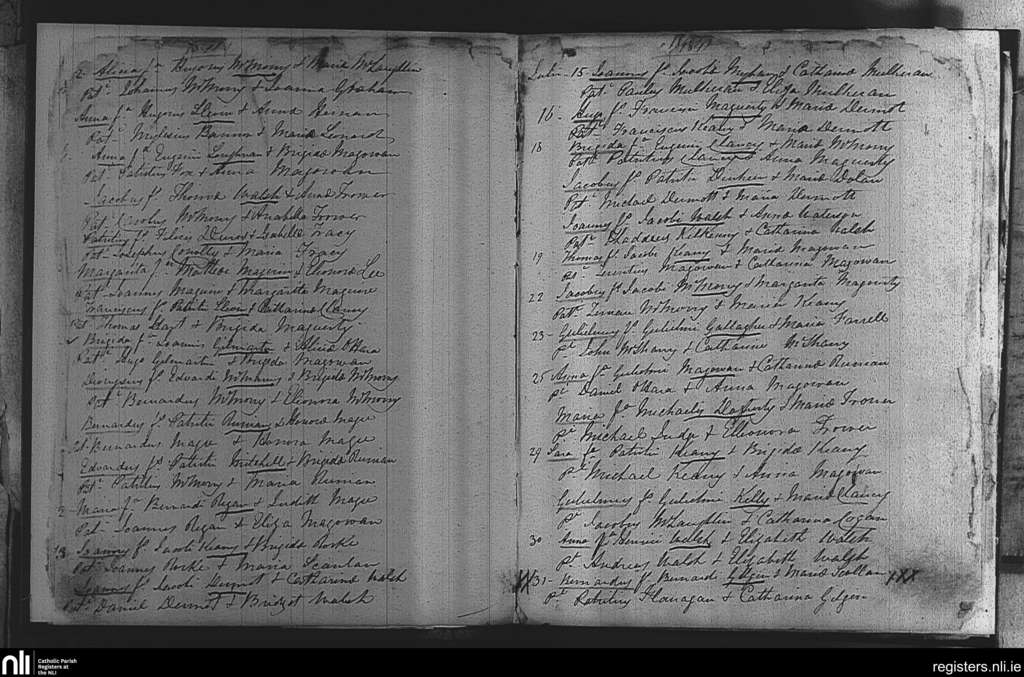 2. Alicia fa Hugonis McMorry & Maria McLaughlin
Patn Johannes McMorry & Joanna Graham
Anna fa Hugonis Slevin & Anna Hernan
Patn Milesius Bannon & Maria Lenard
Anna fa Eugenii Loughnan & Brigida Magowan
Patn Patritius Fox & Anna Magowan
Jacobus fs Thoma Walsh & Anna Frower
Patn Jacobus McMorry & Anabella Frower
Patritius fs Felicis & Isabella Tracy
Patn Josephus Conolly & Maria Tracy
Margarita fa Matthei Maguire & Elenora Lee
Patn Joannes Maguire & Margaretta Maguire
Franciscus fs Patritii Slevin & Catharina Clancy
Patn Thomas Hart & Brigida Maguerty
Brigida fa Joannis Gilmartin & Alicia OHara
Patn Hugo Gilmartin & Brigida Magowan
Dionysius fs Edvardi McMorry & Brigida McMorry
Patn Bernardus McMorry & Elionora McMorry
Bernardus fs Patritii Ruman & Honora Magee
Patn Bernardus Magee & Honora Magee
Edvardus fs Patritii Mitchell & Brigida Ruman
Patn Patritius McMorry & Maria Ruman
Maria fa Bernardi Regan & Judith Magee
Patn Joannes Regan & Eliza Magowan
13 Joannes fs Jacobi Keany & Brigida Rorke
Patn Joannes Rorke & Maria Scanlan
Joannes fs Jacobi Dermot & Catharina Walsh
Patn Daniel Dermot & Bridget Walsh
Julii 15 Joannes fs Jacobi Meehan & Catharina Mulheran
Patn Pauley Mulheran & Eliza Mulheran
16 Hugo fs Francisci Maguerty & Maria Dermot
Patn Franciscus Keany & Maria Dermott
18 Brigida fa Eugenii Clancy & Maria McMorry
Patn Patritius Clancy & Anna Maguerty
Jacobus fs Patritii Durkin & Maria Dolan
Patn Michael Dermott & Maria Dermott
Joannes fs Jacobi Walsh & Anna Waterson
Patn Thaddeus Kilkenny & Catharina Walsh
19 Thomas fs Jacobi Keany & Maria Magowan
Patn Magowan & Catharina Magowan
22 Jacobus fs Jacobi McMorry & Margarita Maguerty
Patn Ternan McMorry & Maria Keany
23 - Gulielmus fs Gulielmi Gallagher & Maria Farrell
Pn John McSharry & Catharine McSharry
25 Anna fa Gulielmi Magowan & Catharina Ruman
Pn Daniel OHara & Anna Magowan
Maria fa Michaelis Dogherty & Maria Frower
Pn Michael Judge & Elleonora Frower
29 Sara fa Patritii Keany & Brigida Keany
Pn Michael Keany & Anna Magowan
Gulielmus fs Gulielmi Kelly & Maria Clancy
Pn Jacobus McLaughlin & Catharina Cogan
30 Anna fa Henrici Walsh & Elizabeth Walsh
Pn Andreas Walsh & Elizabeth Walsh
XX 31 - Bernardus fs Bernardi Gilgen & Maria Scollan XXX
Pn Patritius Flanagan & Catharina Gilgen
nli
Catholic Parish
Registers at
the NLI
registers.nli.ie